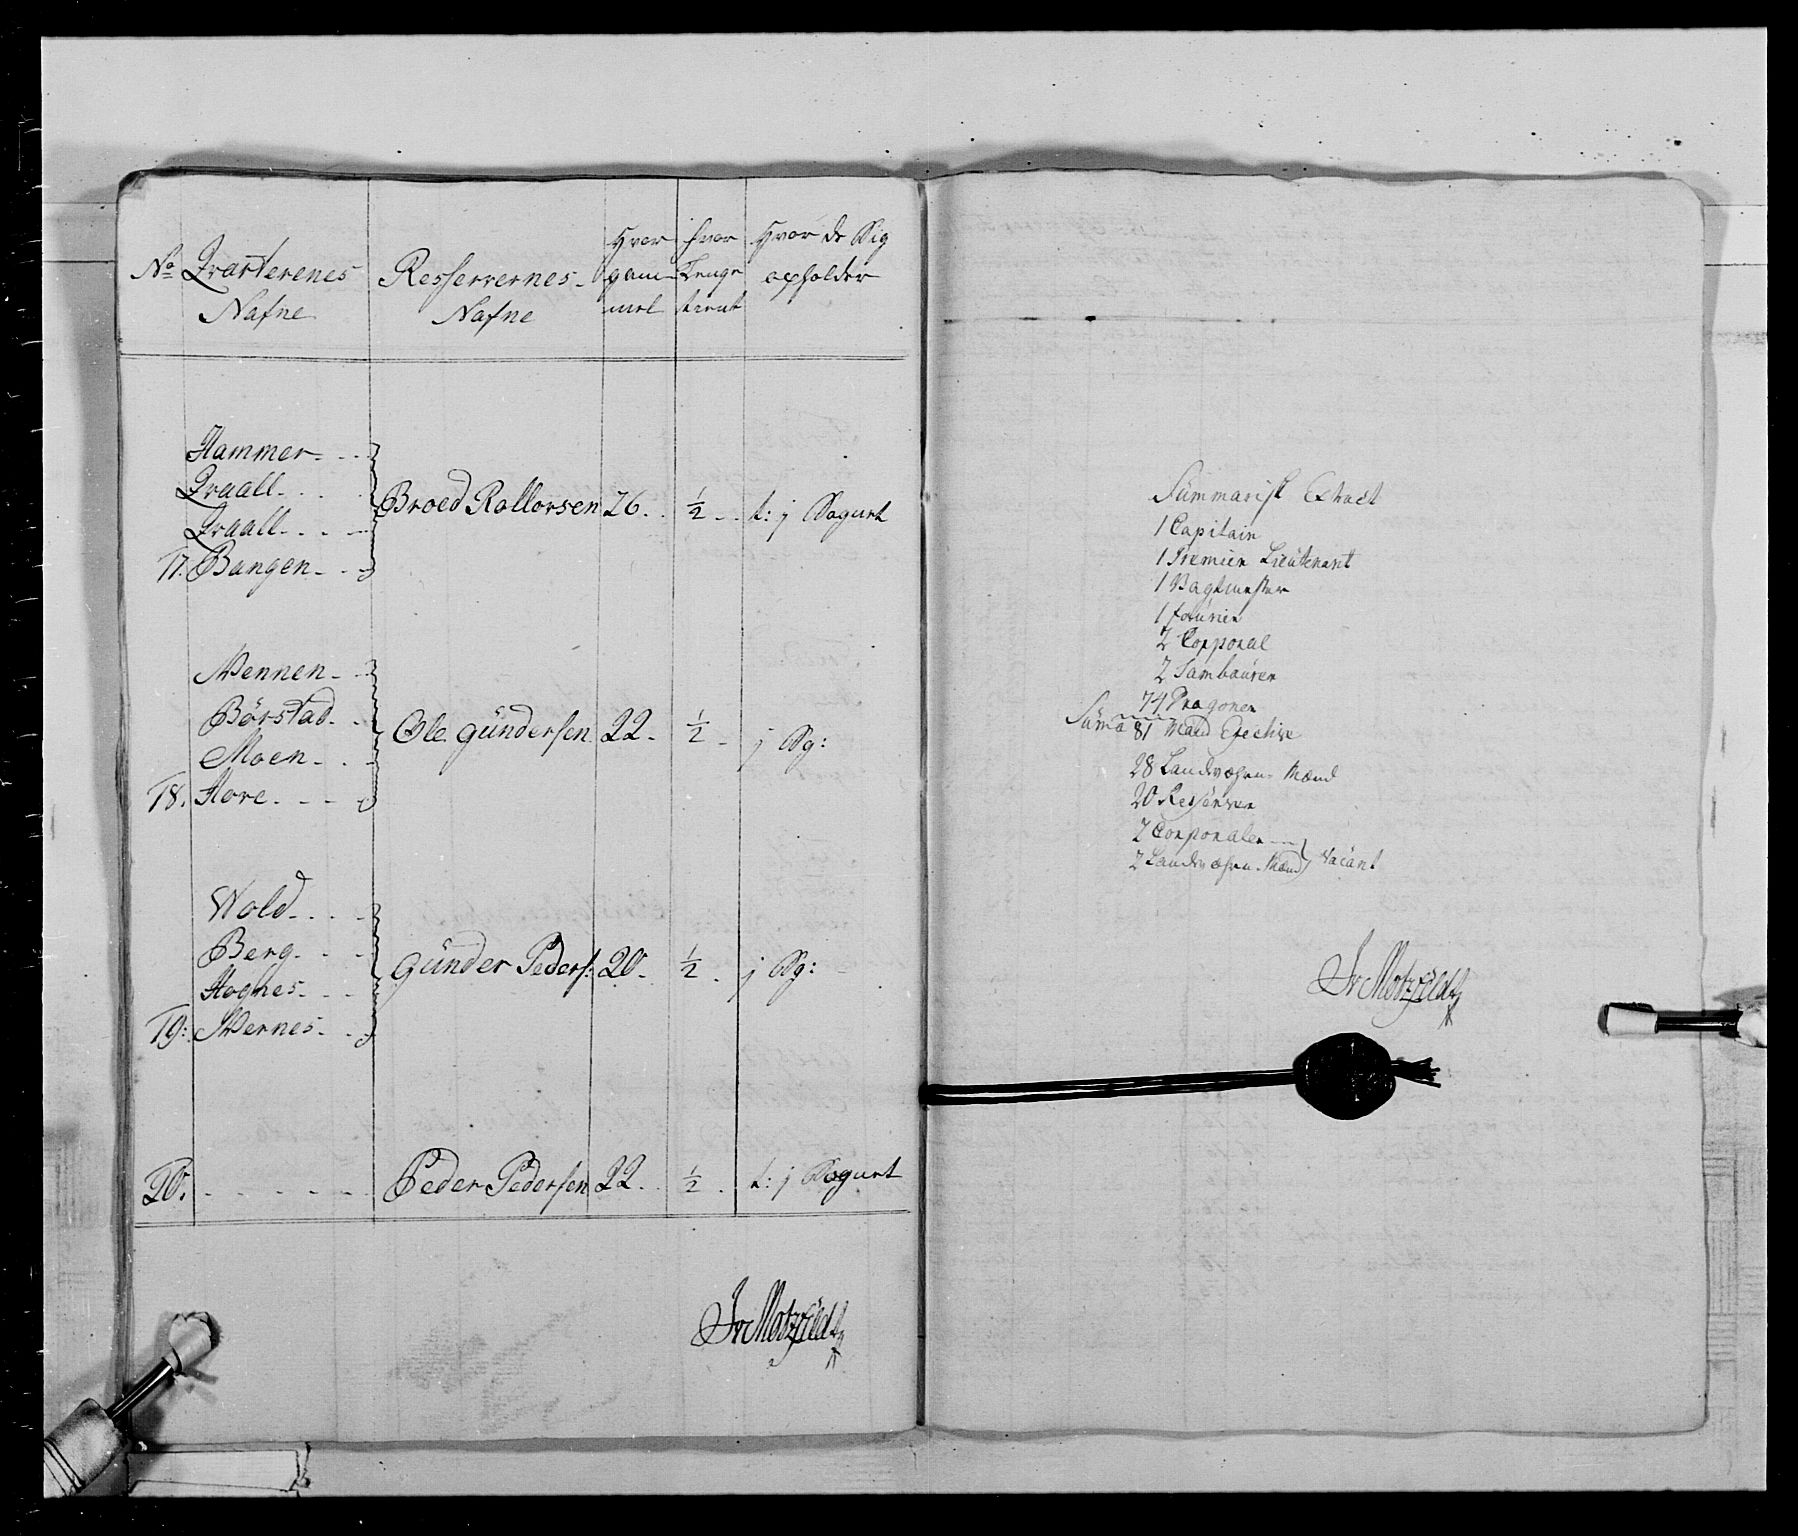 No Qvarterenes Nafne
Resserrernes Nafne
Hvor gam mel
hvor Lenge tient
Hvor de Sig opholder
Hammer
Qraall
Qraall
17. Bangen
Broed Rollorsen 26. ½ t: j Sogurt
Wennen
Börstad
Moen
18. Hore
Ole Gündersen 22. ½ j Sg:
Wold
Berg
Hognes
19: Wernes
Günder Peders: 20. ½ j Sg:
20. Peder Pedersen 22. ½ t: j Sogurt
Jv Motzfeldt
Summarisk Extract
1 Capitain
1 Premier Lieutenant
1 Vagtmester
1 fourier
2 Corporal
2 Tambourer
74 Dragoner
Suma 81 Mand Efective
28 Landværn-Mænd
20 Resserver
2 Corporaler
2 Landværn-Mænd Vacant
Jv Motzfeldt